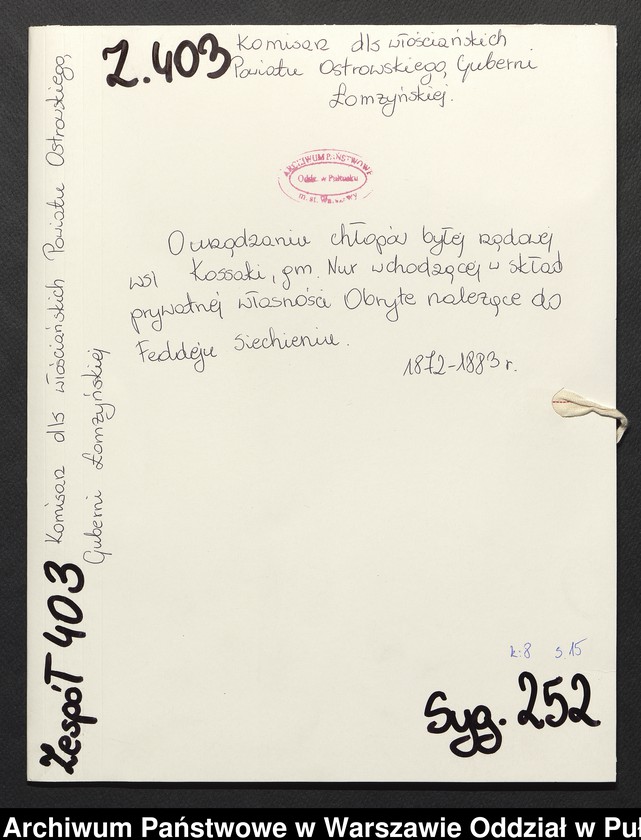 Z.403
Komisarz dls włościańskich
Powiatu Ostrowskiego, Guberni
Łomżyńskiej.
ARCHIWUM PAŃSTWOWE
Oddz. w Pułtusku
m. st. Warszawy
O urządzaniu chłopów byłej rządowej
wsi Kossaki, gm. Nur wchodzącej w skład
prywatnej własności Obryte należące do
Feddeju Siechieniu.
1872-1883 r.
k:8 s.15
Syg. 252
Zespół 403 Komisarz dls włościańskich Powiatu Ostrowskiego,
Guberni Łomżyńskiej
Archiwum Państwowe w Warszawie Oddział w Puł